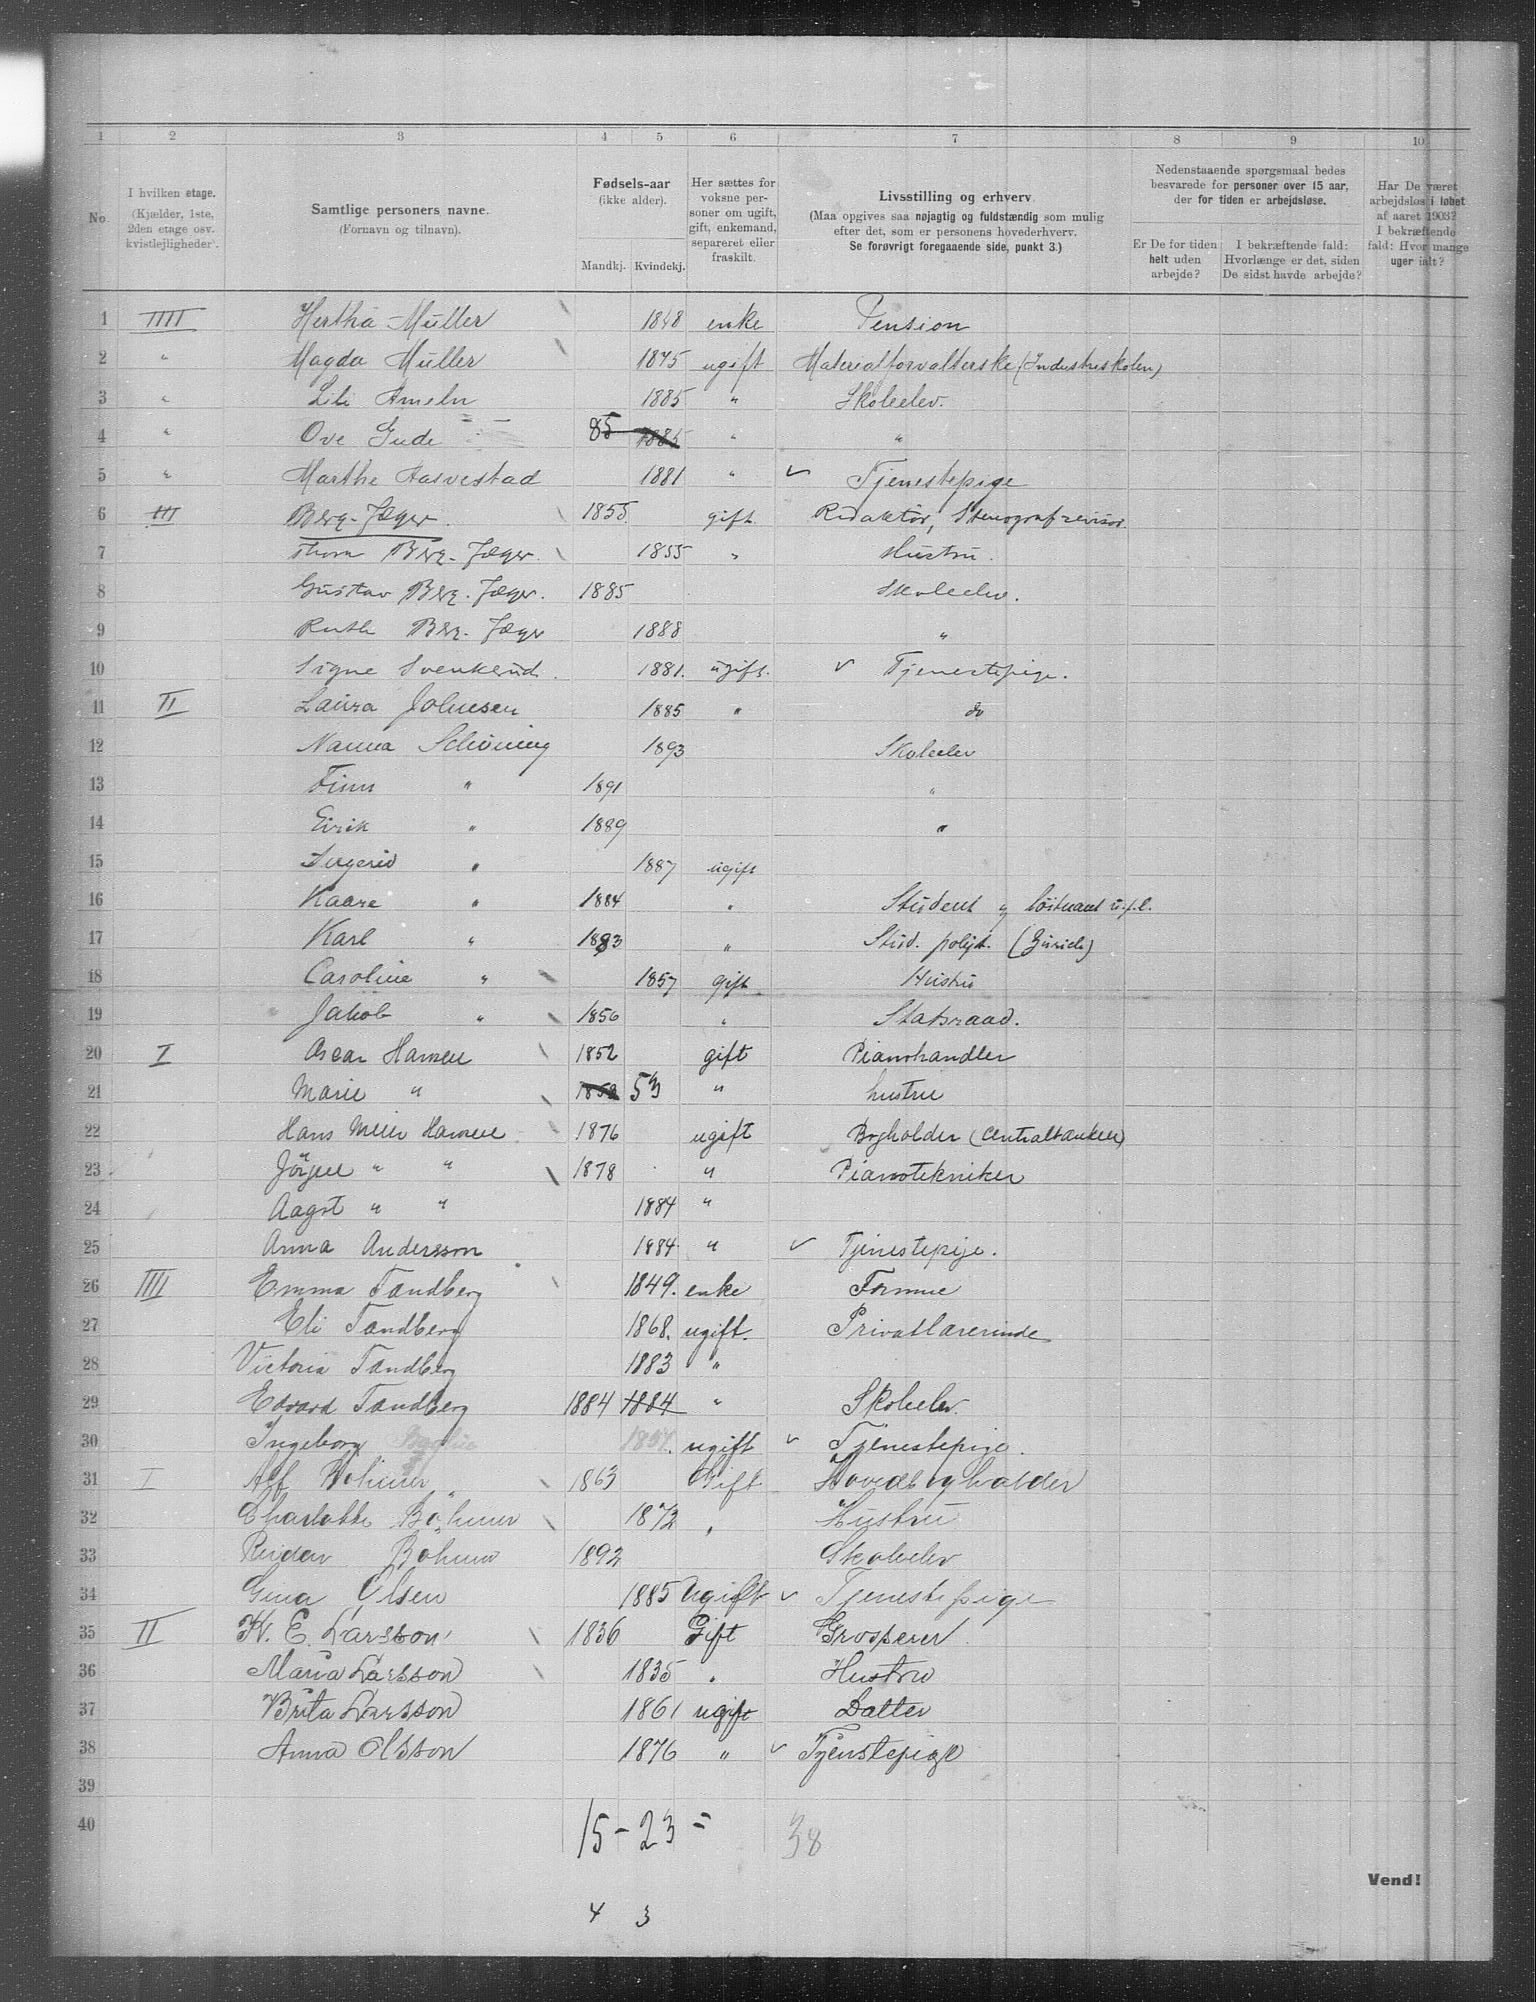 1 2 3 4 5 6 7 8 9 10
No. I hvilken etage. (Kjælder, 1ste, 2den etage osv. kvistlejligheder). Samtlige personers navne. (Fornavn og tilnavn). Fødsels-aar (ikke alder). Mandkj. Kvindekj. Her sættes for voksne personer om ugift, gift, enkemand, separeret eller fraskilt. Livsstilling og erhverv. (Maa opgives saa nøjagtig og fuldstændig som mulig efter det, som er personens hovederhverv. Se forøvrigt foregaaende side, punkt 3.) Nedenstaaende spørgsmaal bedes besvarede for personer over 15 aar, der for tiden er arbejdsløse. Er De for tiden helt uden arbejde? I bekræftende fald: Hvorlænge er det, siden De sidst havde arbejde? Har De været arbejdsløs i løbet af aaret 1903? I bekræftende fald: Hvor mange uger ialt?
1 IIII Hertha Müller 1848 enke Pension
2 " Magda Müller 1875 ugift Materialforvalterske (Industriskolen)
3 " Lili Ameln 1885 " Skoleelev.
4 " Ove Gude 85 1885 " "
5 " Marthe Aasvestad 1881 " ✓ Tjenestepige
6 III Berg-Jæger. 1855 gift. Redaktør, Stenograf revisor.
7 Thora Berg-Jæger. 1855 " Hustru.
8 Gustav Berg-Jæger. 1885 Skoleelev.
9 Ruth Berg-Jæger 1888 "
10 Signe Svenkerud. 1881. ugift. ✓ Tjenestepige.
11 II Laura Johnsen 1885 " do
12 Nanna Schöning 1893 Skoleelev
13 Finn " 1891 "
14 Eirik " 1889 "
15 Ingerid " 1887 ugift
16 Kaare " 1884 " Student og löitnant u.f.l.
17 Karl " 1883 " Stud. polyt. (Zürich)
18 Caroline " 1857 gift Hustru
19 Jakob " 1856 " Statsraad.
20 I Oscar Hansen 1852 gift Pianohandler
21 Marie " 1853 53 " hustru
22 Hans Meier Hansen 1876 ugift Bogholder (Centralbanken)
23 Jörgen " " 1878 " Pianotekniker
24 Aagot " " 1884 "
25 Anna Andersson 1884 " ✓ Tjenestepige.
26 IIII Emma Tandberg 1849. enke Formue
27 Eli Tandberg 1868. ugift. Privatlærerinde
28 Victoria Tandberg 1883 "
29 Edvard Tandberg 1884 1884 " Skoleelev.
30 Ingeborg ugift ✓ Tjenestepige.
31 I Alf Bohmer 1863 Gift Hovedbogholder
32 Charlotte Böhmer 1872 " Hustru
33 Reidar Böhmer 1892 Skoleelev
34 Gina Olsen 1885 Ugift ✓ Tjenestepige
35 II K. E. Larsson 1836 Gift Grosserer
36 Maria Larsson 1835 " Hustru
37 Brita Larsson 1861 ugift Datter
38 Anna Olsson 1876 " ✓ Tjenstepige
39
40 15 - 23 = 38
Vend!
4 3